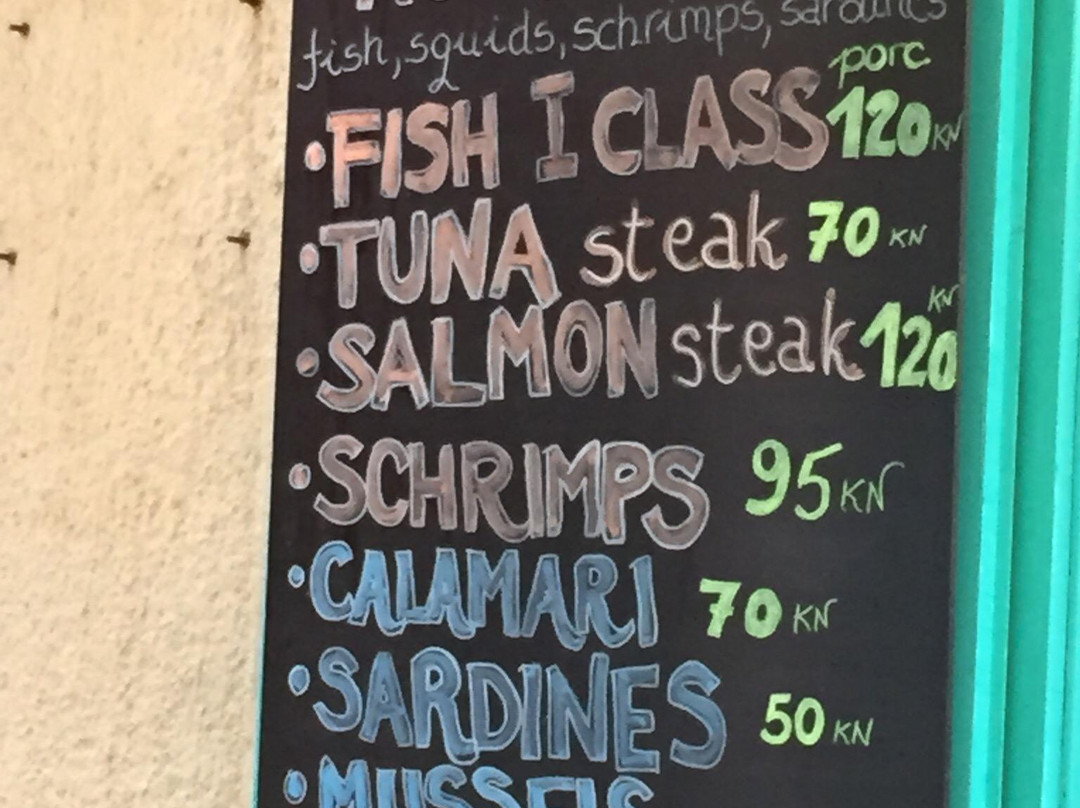 fish, squids, schrimps, sardines
porc
• FISH I CLASS 120 KN
• TUNA steak 70 KN
• SALMON steak 120 KN
• SCHRIMPS 95 KN
• CALAMARI 70 KN
• SARDINES 50 KN
• MUSSELS